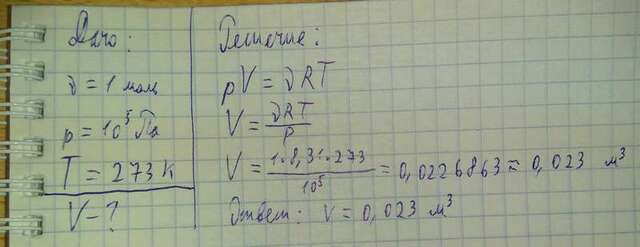 Дано:
ν = 1 моль
p = 10⁵ Па
T = 273 К
V – ?
Решение:
pV = νRT
V = νRT/p
V = 1·8,31·273/10⁵ = 0,0226863 ≈ 0,023 м³
Ответ: V = 0,023 м³